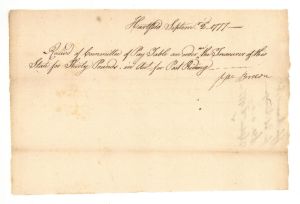 Hartford Septem. 1777
Received of Committee of Pay Table an order on the Treasurer of this
State for Thirty Pounds, in Acct for Post Riding